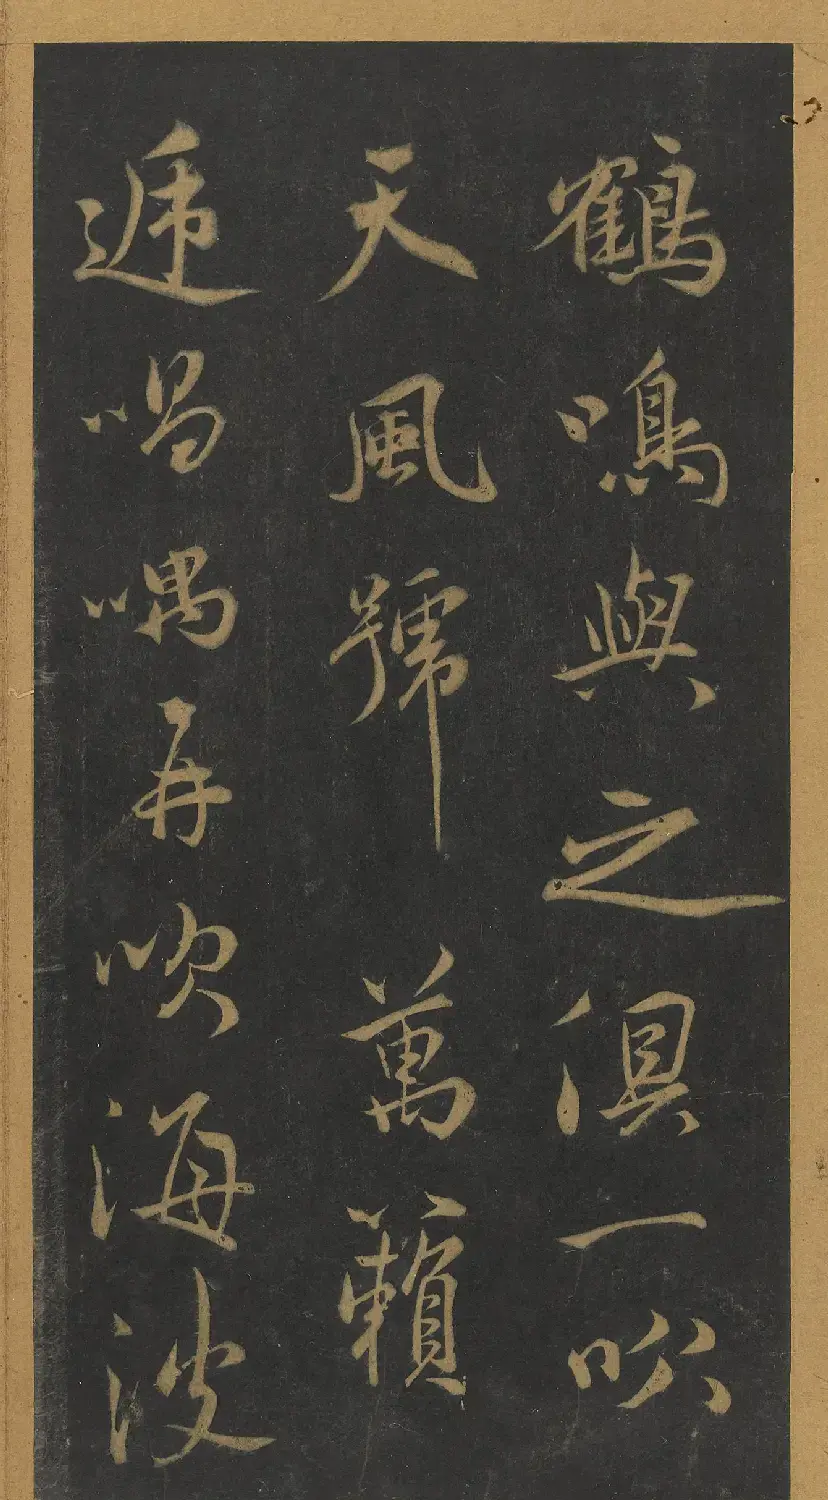 鶴鳴與之俱一吹
天風號萬籟
遞唱喁再吹海波